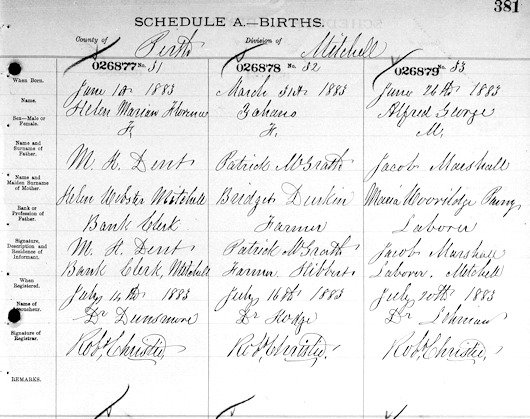 381
SCHEDULE A.—BIRTHS.
County of Perth Division of Mitchell
026877 No. 51 026878 No. 52 026879 No. 53
When Born. June 10th 1883 March 31st 1883 June 26th 1883
Name. Helen Marian Florence Johano Alfred George
Sex—Male or Female. F. F. M.
Name and Surname of Father. M. H. Dent Patrick McGrath Jacob Marshall
Name and Maiden Surname of Mother. Helen Webster Mitchell Bridget Durkin Maria
Rank or Profession of Father. Bank Clerk Farmer Laborer
Signature, Description and Residence of Informant. M. H. Dent Patrick McGrath Jacob Marshall
Bank Clerk Mitchell Farmer Hibbert Laborer Mitchell
When Registered. July 14th 1883 July 16th 1883 July 20th 1883
Name of Accoucheur. Dr Dunsmore Dr Hodge Dr
Signature of Registrar. Robt Christie Robt Christie Robt Christie
REMARKS.